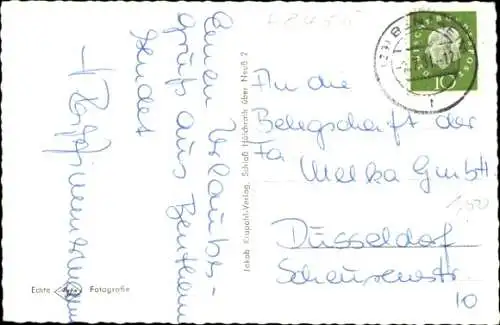 Einen Urlaubs-
gruß aus Bentheim
sendet
Echte Agfa Fotografie
Jakob Krapohl-Verlag, Schloß Hülchrath über Neuß 2
DEUTSCHE BUNDESPOST
10
An die
Belegschaft der
Fa
Melka GmbH
Düsseldorf
Scheurenstr
10